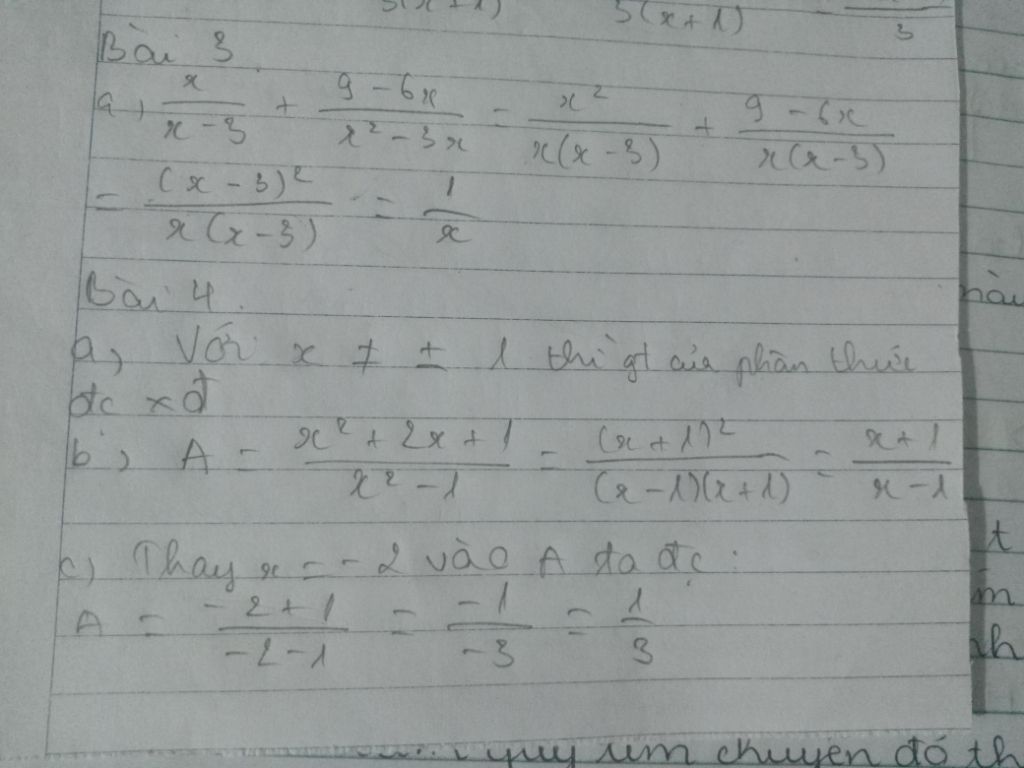 3(x+1)
3
Bài 3
a, x/(x-3) + (9-6x)/(x²-3x) = x²/(x(x-3)) + (9-6x)/(x(x-3))
= (x-3)²/(x(x-3)) = 1/x
Bài 4.
a, Với x ≠ ± 1 thì gt của phân thức
đc xđ
b, A = (x²+2x+1)/(x²-1) = (x+1)²/((x-1)(x+1)) = (x+1)/(x-1)
c) Thay x = -2 vào A ta đc:
A = (-2+1)/(-2-1) = -1/-3 = 1/3
chuyện đó th